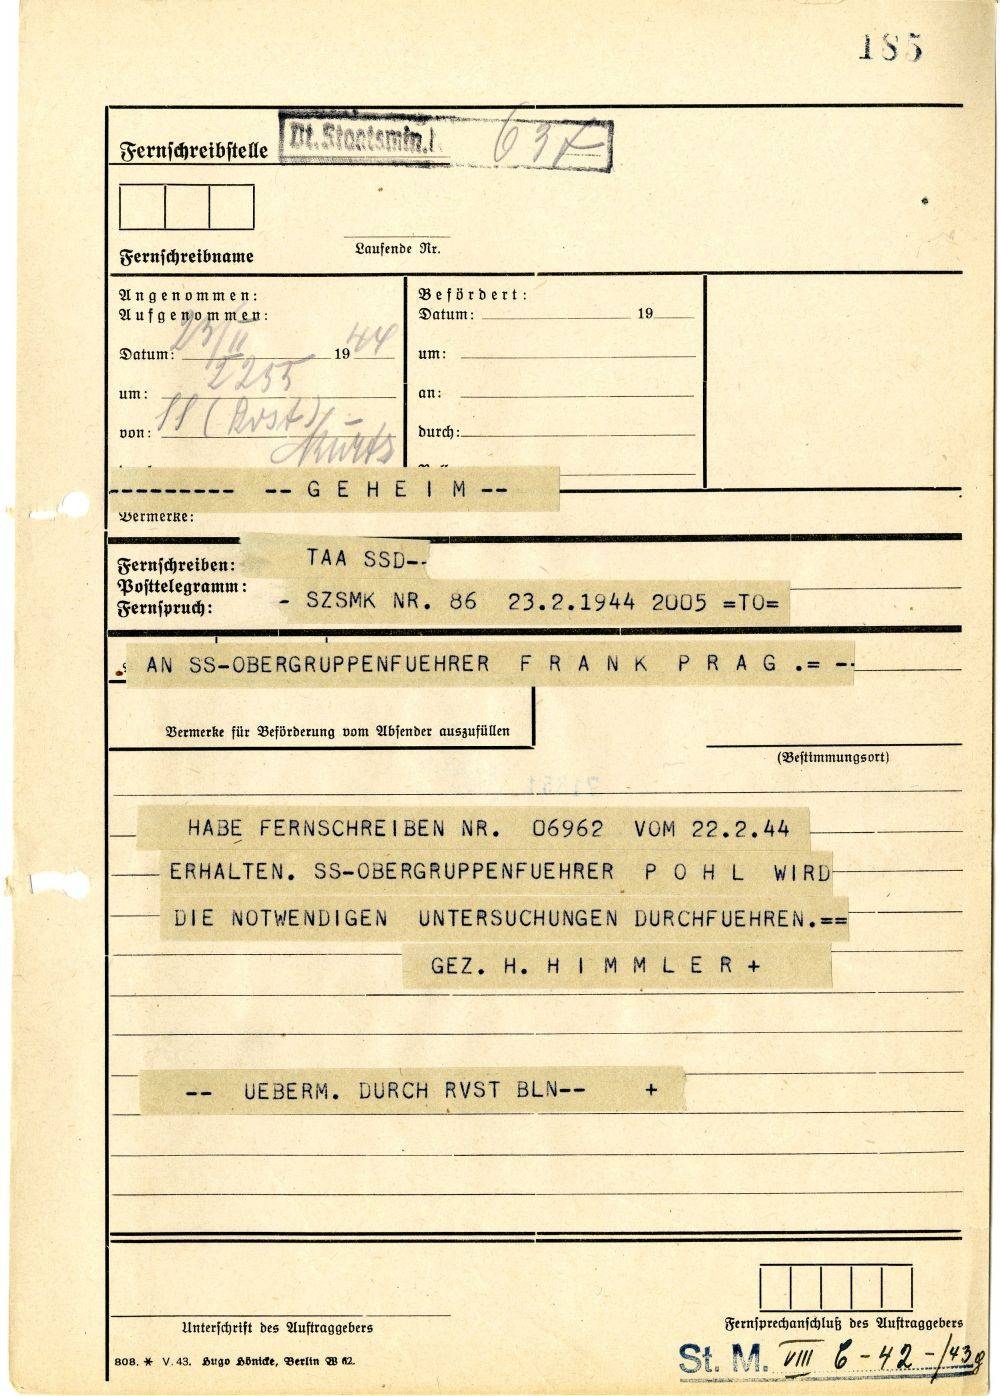 185
Fernschreibstelle
Dt. Staatsmin.
637
Fernschreibname
Laufende Nr.
Angenommen:
Aufgenommen:
Datum: 23/II 1944
um: 2255
von: SS (Rvst)
Befördert:
Datum: 19
um:
an:
durch:
--------- -- G E H E I M --
Vermerke:
Fernschreiben:
Posttelegramm:
Fernspruch:
TAA SSD--
- SZSMK NR. 86 23.2.1944 2005 =TO=
AN SS-OBERGRUPPENFUEHRER F R A N K P R A G .= --
Vermerke für Beförderung vom Absender auszufüllen
(Bestimmungsort)
HABE FERNSCHREIBEN NR. 06962 VOM 22.2.44
ERHALTEN. SS-OBERGRUPPENFUEHRER P O H L WIRD
DIE NOTWENDIGEN UNTERSUCHUNGEN DURCHFUEHREN.==
GEZ. H. H I M M L E R +
-- UEBERM. DURCH RVST BLN-- +
Unterschrift des Auftraggebers
Fernsprechanschluß des Auftraggebers
808. * V. 43. Hugo Hönicke, Berlin W 62.
St. M. VIII C - 42 - /43g